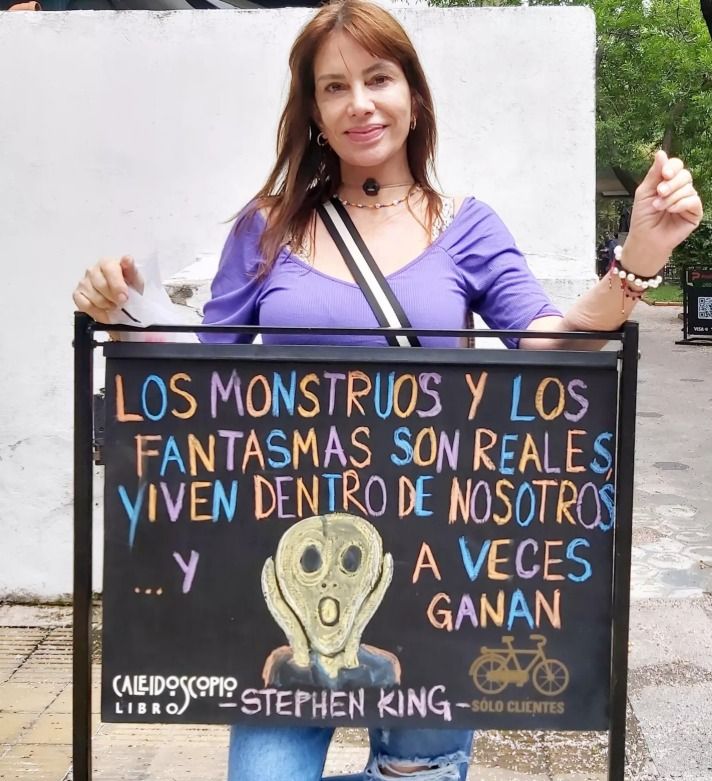 LOS MONSTRUOS Y LOS
FANTASMAS SON REALES,
VIVEN DENTRO DE NOSOTROS
... Y A VECES
GANAN
CALEIDOSCOPIO
LIBROS
-STEPHEN KING-
SÓLO CLIENTES
VISA